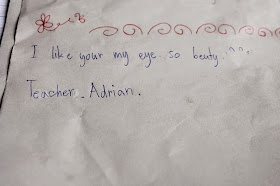 I like your my eye. so beuty. ^^.
Teacher. Adrian.